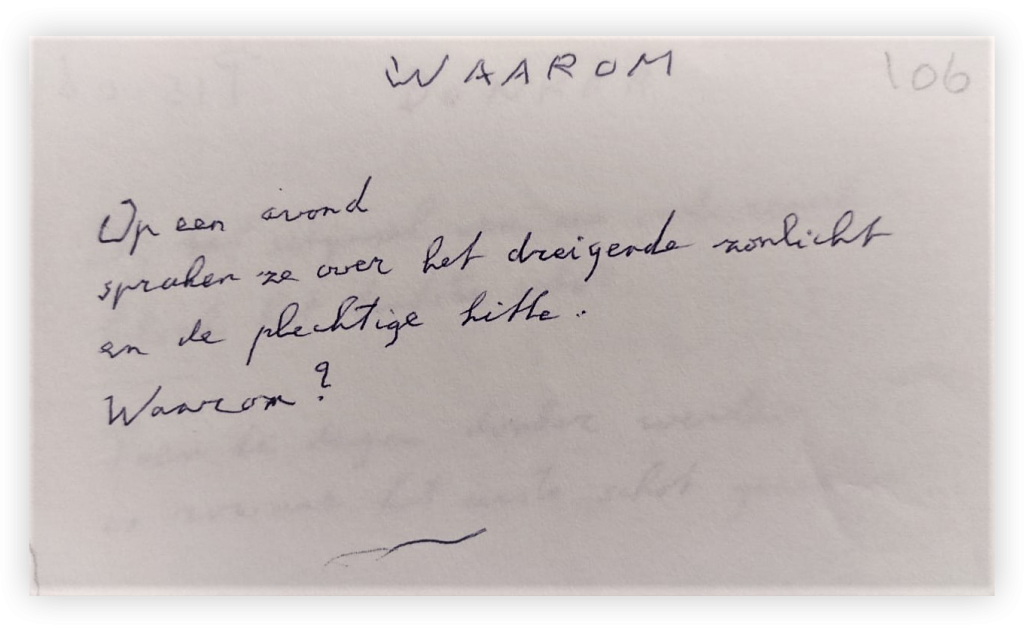 WAAROM
106
Op een avond
spraken ze over het dreigende zonlicht
en de plechtige hitte.
Waarom?